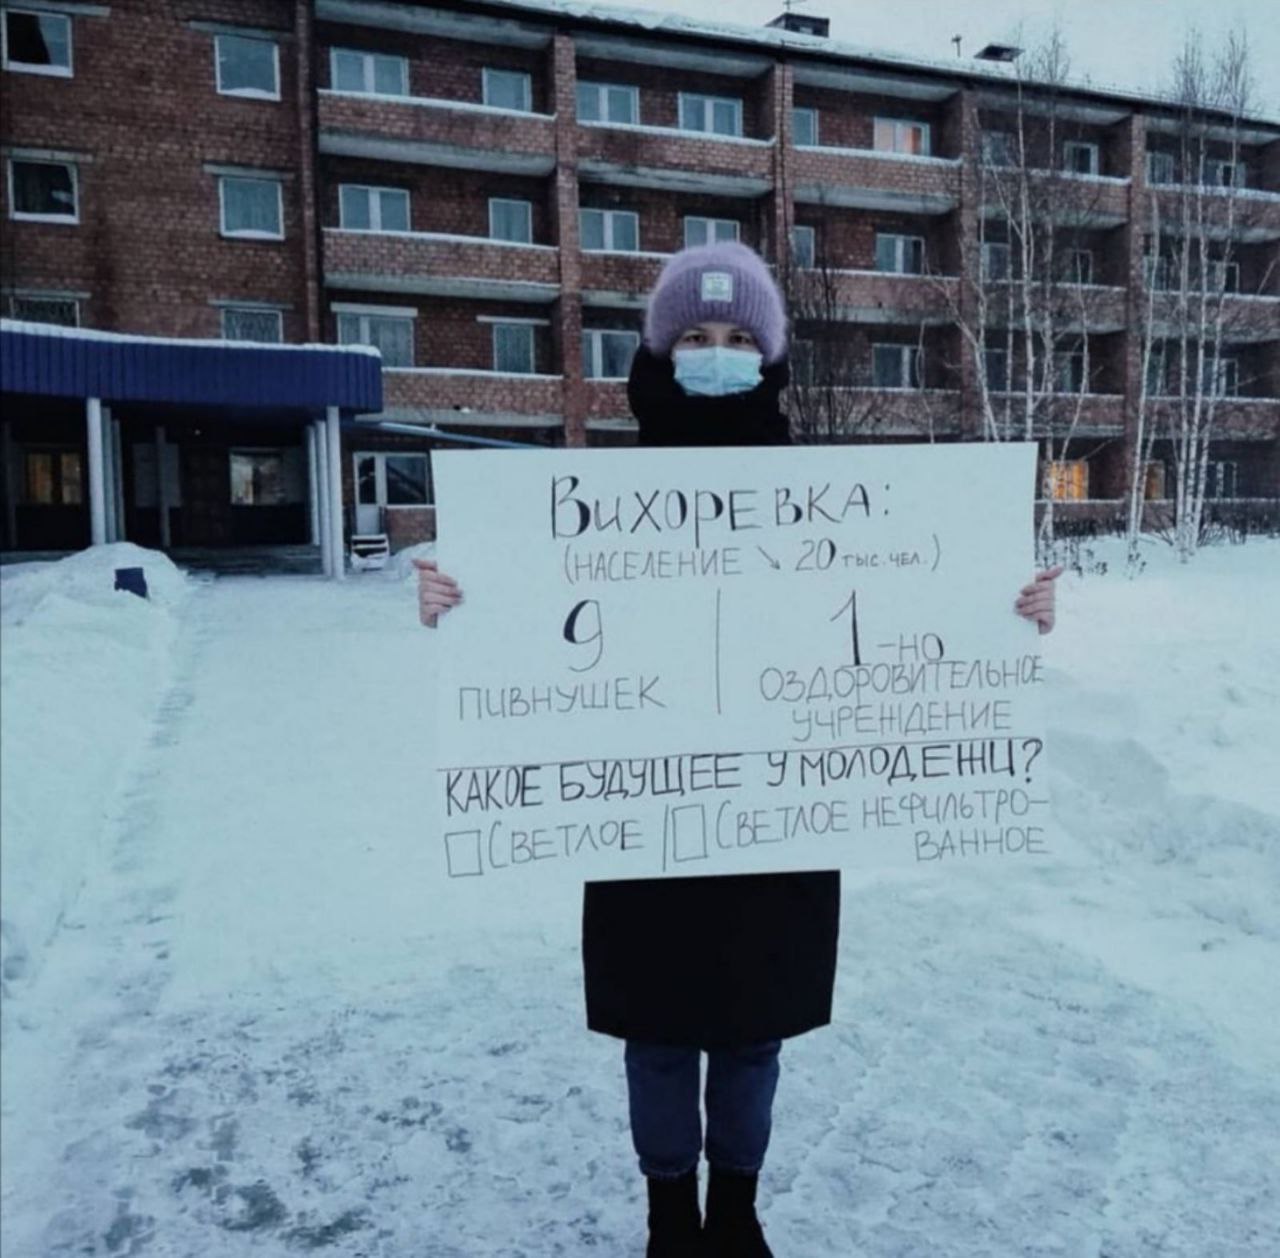 Вихоревка:
(население ↘ 20 тыс. чел.)
9
пивнушек
1-но
оздоровительное
учреждение
Какое будущее у молодежи?
□ Светлое | □ Светлое нефильтро-
ванное